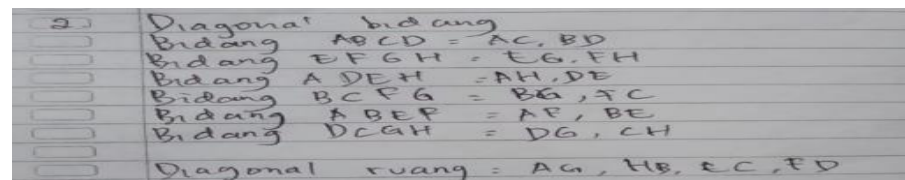 2 Diagonal bidang
Bidang ABCD = AC, BD
Bidang EFGH = EG, FH
Bidang ADEH = AH, DE
Bidang BCFG = BG, FC
Bidang ABEF = AF, BE
Bidang DCGH = DG, CH
Diagonal ruang = AG, HB, EC, FD